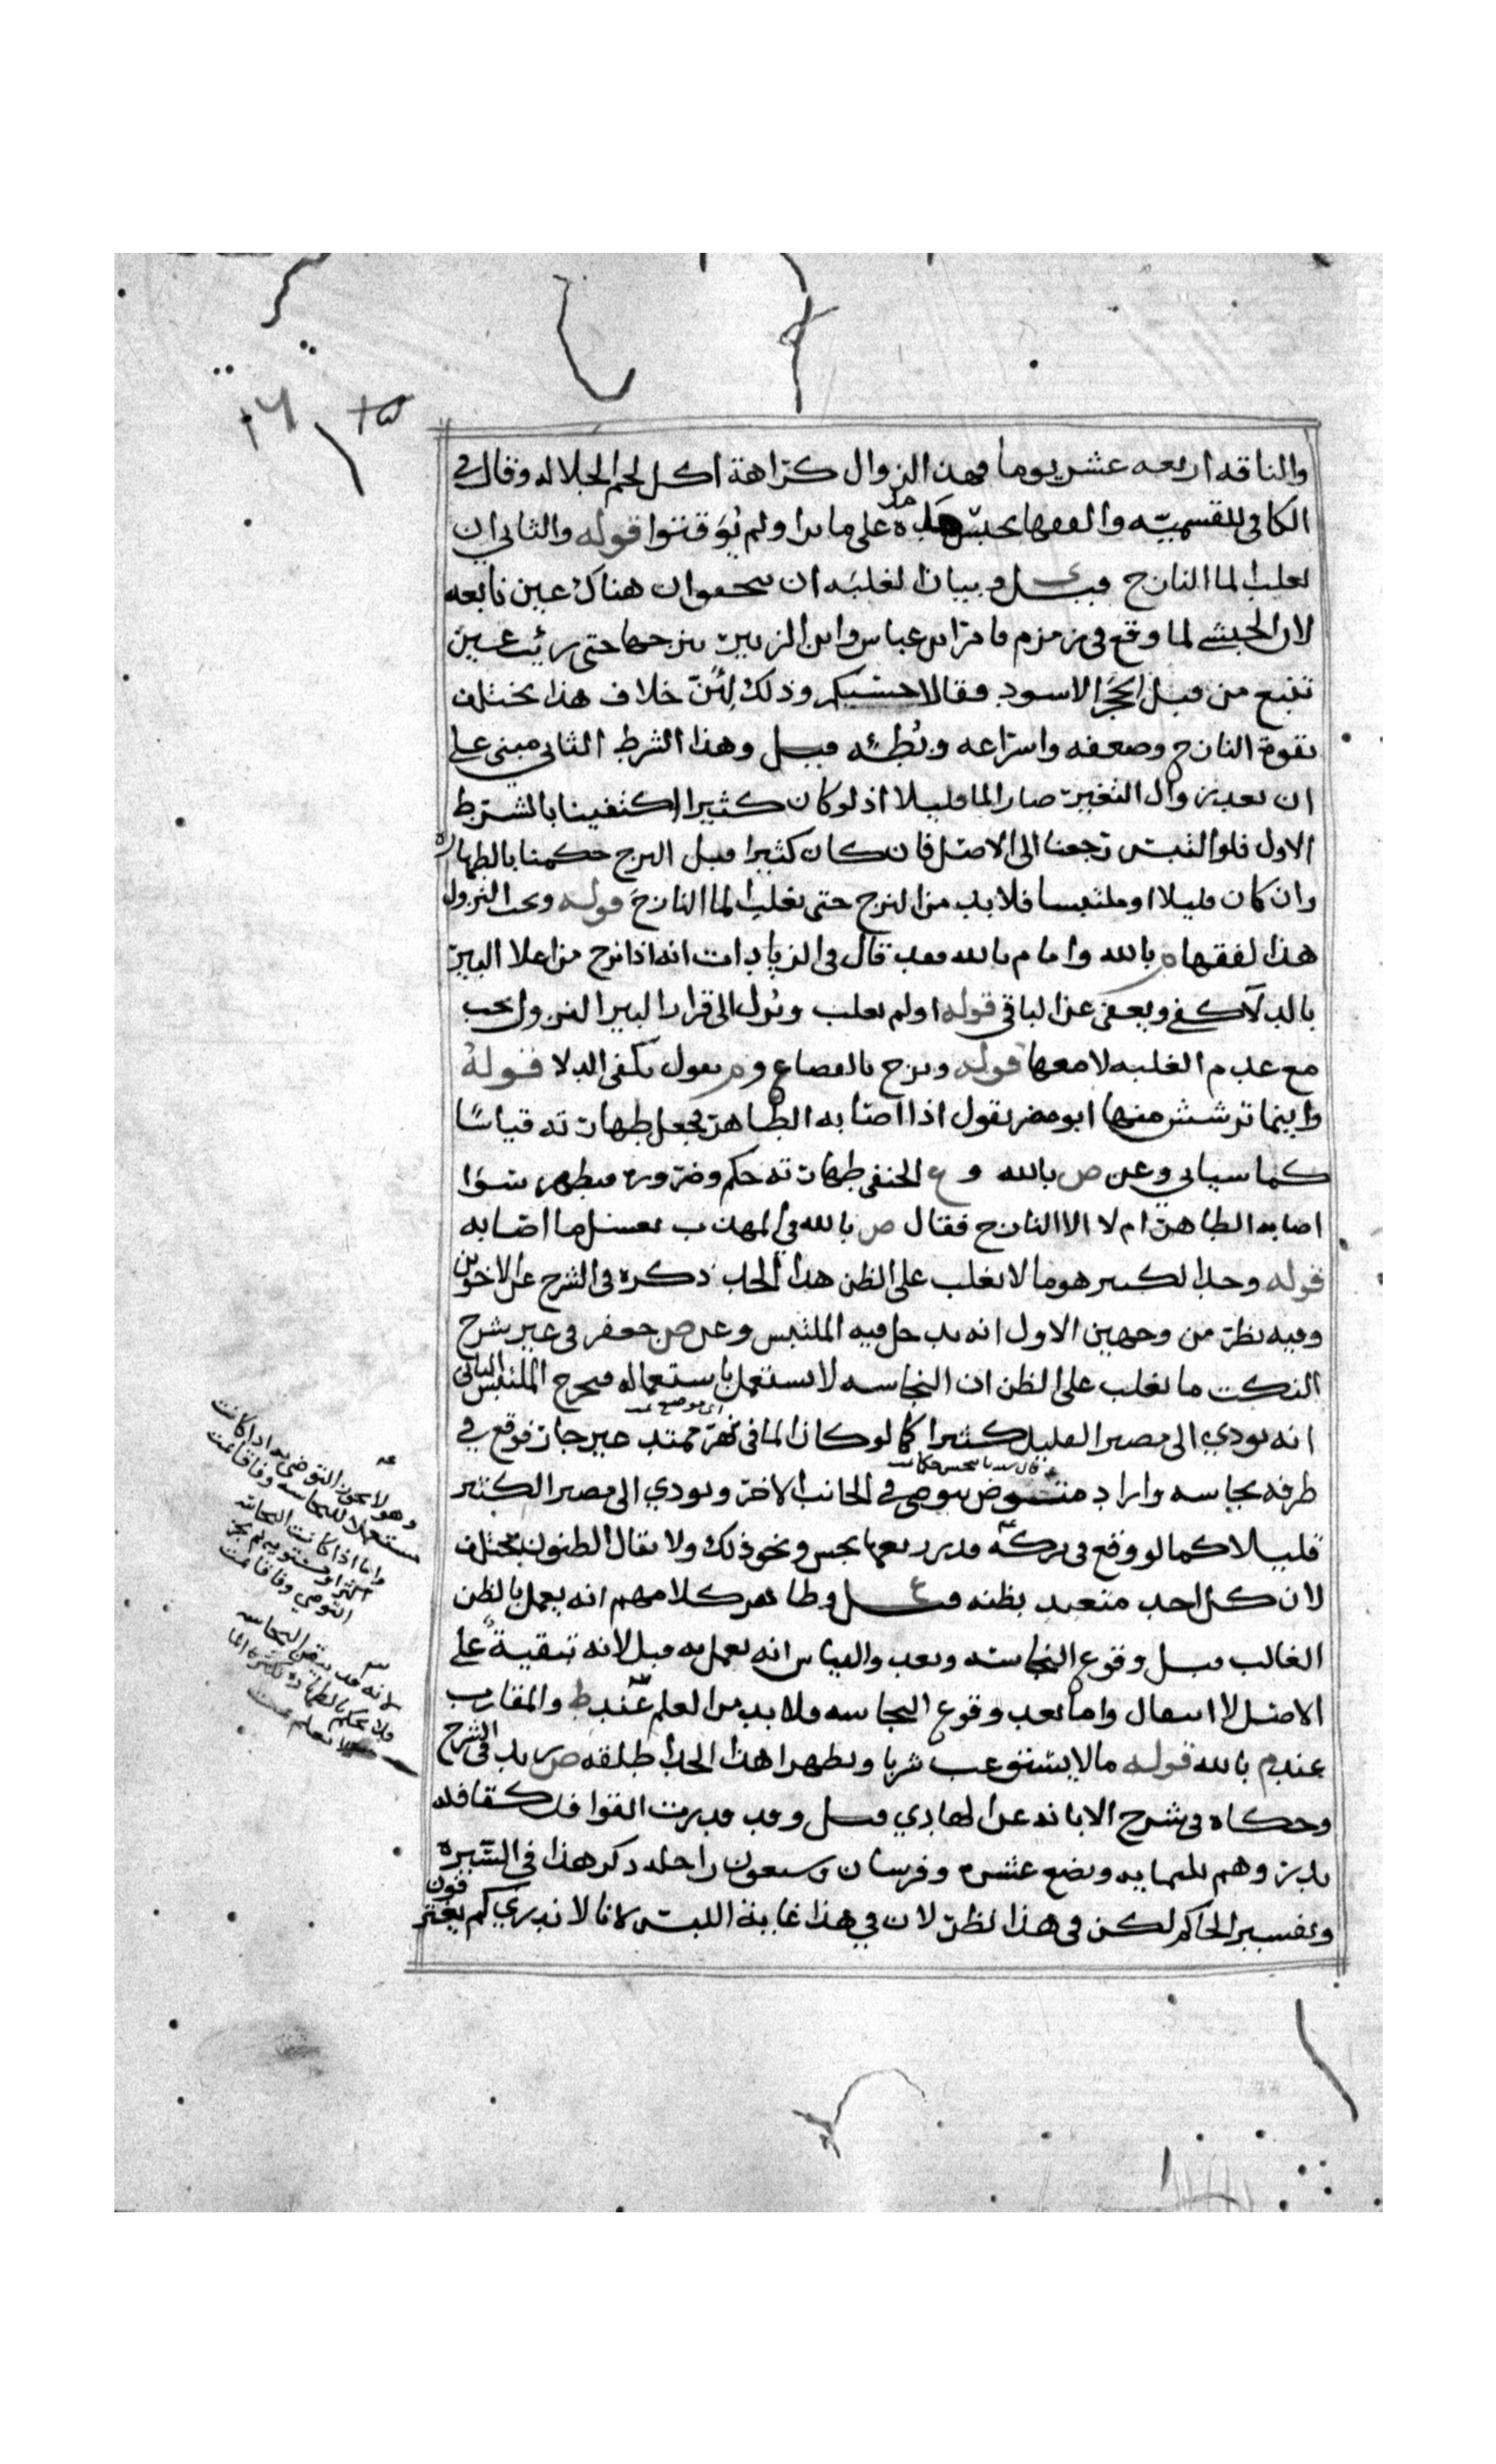 والناقه اربعه عشر يوما فهذا لزوال كراهة اكل لحم الجلاله وقال في
الكافي للقسميه والفقها بحبس مده على ما يرا ولم يؤقتوا قوله والثاني ان
يغلب الما النازح قيل ي وبيان الغلبه ان يتحققوا ان هناك عين نابعه
لان الحبشي لما وقع في زمزم فامر ابن عباس وابن الزبير بنزحها حتى رئيت عين
تنبع من قبل الحجر الاسود فقالا حسبكم وذلك لئن خلاف هذا يختلف
بقوة النازح وضعفه واسراعه وبطئه قيل وهذا الشرط الثاني مبني على
ان بعد زوال التغير صار الما قليلا اذ لو كان كثيرا اكتفينا بالشرط
الاول فلو التبس رجعنا الى الاصل فان كان كثيرا قبل النزح حكمنا بالطهاره
وان كان قليلا او ملتبسا فلا بد من النزح حتى يغلب الما النازح قوله ويجب النزول
هذا لفقها م بالله واما م بالله فقد قال في الزيادات انه اذا نزح من اعلا البير
بالدلا كفى ويعفى عن الباقي قوله او لم يغلب ونزل الى قرار البير النزول يجب
مع عدم الغلبه لا معها قوله ونزح بالقصاع و م يقول يكفي الدلا قوله
واينما ترشش منها ابو مضر يقول اذا اصابه الطاهر فجعل طهارته قياسًا
كما سياتي وعن ص بالله و ع الحنفي طهارته حكم وضرورة فيطهر سوا
اصابه الطاهر ام لا الا النازح فقال ص بالله في المهذب يغسل ما اصابه
قوله وحد الكثير هو ما لا يغلب على الظن هذا الحد ذكره في الشرح عن الاخوين
وفيه نظر من وجهين الاول انه يدخل فيه الملتبس وعن ص جعفر في غير شرح
النكت ما يغلب على الظن ان النجاسه لا تستعمل باستعماله فيخرج الملتبس الثاني
انه يودي الى مصير القليل كثيرا كما لو كان الما في نهر ممتد غير جار فوقع في
طرفه نجاسه واراد متوض يتوضى في الجانب الاخر ويودي الى مصير الكثير
قليلا كما لو وقع في بركه قدر نجس ونحو ذلك ولا يقال الظنون تختلف
لان كل احد متعبد بظنه قيل ع وظاهر كلامهم انه يعمل بالظن
الغالب قبل وقوع النجاسه وبعد والقياس انه يعمل به قبل لانه تبقية على
الاصل لا انتقال واما بعد وقوع النجاسه فلا بد من العلم عند ط والمقارب
عند م بالله قوله ما لا يستوعب شربا وتطهرا هذا الحد اطلقه ص زيد في الشرح
وحكاه في شرح الابانه عن الهادي قيل وقد قدرت القوافل كقافله
بدر وهم ثلثمايه وبضع عشره وفرسان وسبعون راحله ذكر هذا في السيره
وتفسير الحاكم لكن في هذا نظر لان في هذا غاية اللبس لانا لا ندري كم يغترفون
اي موضع
وهو لا يجوز التوضي به اذا كانت
مستعملا للنجاسه وفاقا
واما اذا كانت النجاسه
اكثر او مستويه لم يجز
التوضي وفاقا
لانه قد تيقن النجاسه
فلا يحكم بالطهاره